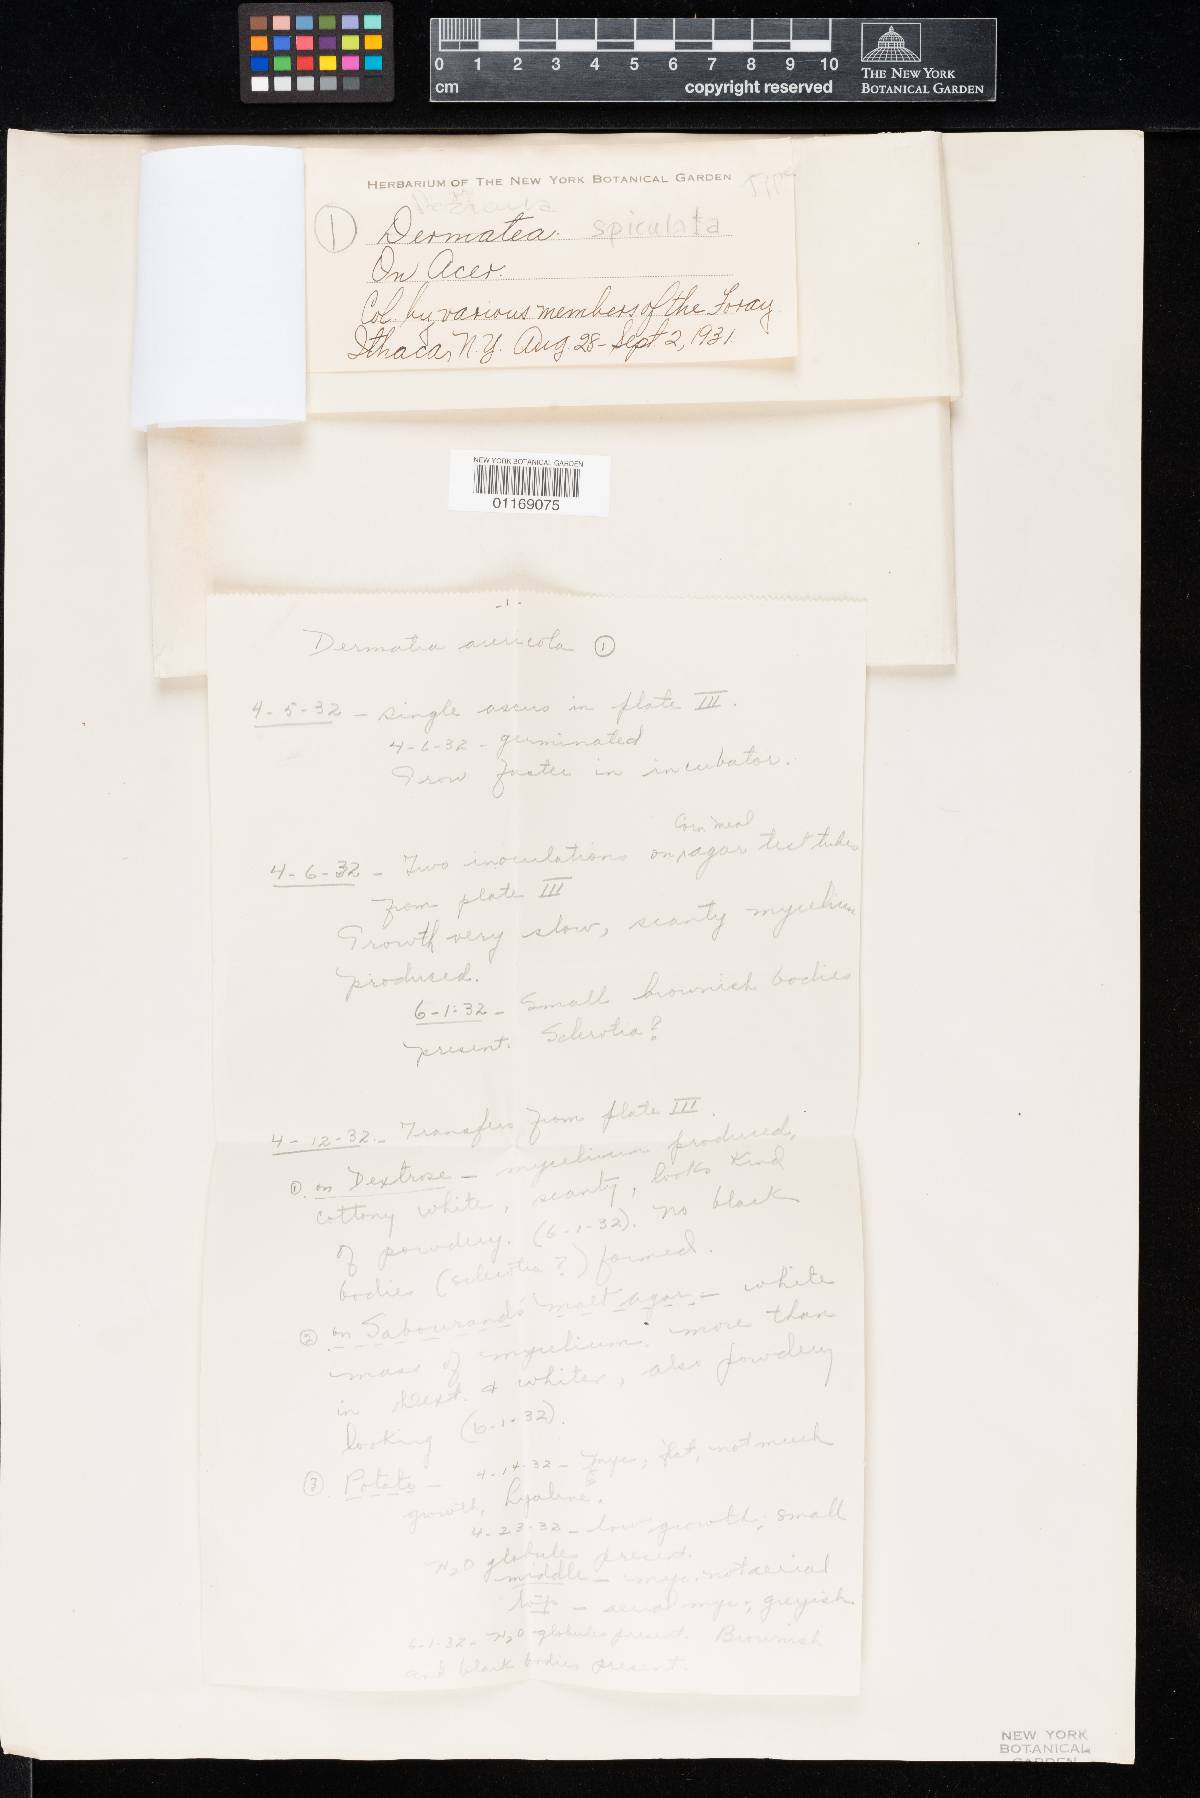 0 1 2 3 4 5 6 7 8 9 10
cm
copyright reserved
THE NEW YORK
BOTANICAL GARDEN
HERBARIUM OF THE NEW YORK BOTANICAL GARDEN
Type
1 Dermatea spiculata
On Acer.
Col. by various members of the Foray
Ithaca, N.Y. Aug. 28 - Sept 2, 1931.
NEW YORK BOTANICAL GARDEN
01169075
- 1 -
Dermatea 1
4-5-32 - single ascus in plate III.
4-6-32 - germinated
Grow faster in incubator.
Corn meal
4-6-32 - Two inoculations on agar test tubes
from plate III
Growth very slow, scanty mycelium
produced.
6-1-32 - Small brownish bodies
present. Sclerotia?
4-12-32 - Transfers from plate III.
1. on Dextrose - mycelium produced,
cottony white, scanty, looks kind
of powdery. (6-1-32). No black
bodies (sclerotia?) formed.
2 on Sabourand's malt agar - white
mass of mycelium. more than
in Dext. & whiter, also powdery
looking (6-1-32).
3. Potato - 4-14-32 - myc, flat, not much
growth, hyaline.
4-23-32 - low growth, small
H2O globules present.
middle - myc. not aerial
top - aerial myc, greyish
6-1-32 - H2O globules present. Brownish
and black bodies present.
NEW YORK
BOTANICAL
GARDEN